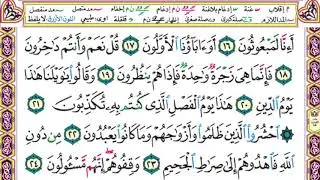 أَءِنَّا لَمَبۡعُوثُونَ ١٦ أَوَءَابَآؤُنَا ٱلۡأَوَّلُونَ ١٧ قُلۡ نَعَمۡ وَأَنتُمۡ دَٰخِرُونَ
١٨ فَإِنَّمَا هِيَ زَجۡرَةٞ وَٰحِدَةٞ فَإِذَا هُمۡ يَنظُرُونَ ١٩ وَقَالُواْ يَٰوَيۡلَنَا هَٰذَا
يَوۡمُ ٱلدِّينِ ٢٠ هَٰذَا يَوۡمُ ٱلۡفَصۡلِ ٱلَّذِي كُنتُم بِهِۦ تُكَذِّبُونَ ٢١
ٱحۡشُرُواْ ٱلَّذِينَ ظَلَمُواْ وَأَزۡوَٰجَهُمۡ وَمَا كَانُواْ يَعۡبُدُونَ ٢٢ مِن دُونِ
ٱللَّهِ فَٱهۡدُوهُمۡ إِلَىٰ صِرَٰطِ ٱلۡجَحِيمِ ٢٣ وَقِفُوهُمۡ إِنَّهُم مَّسۡـُٔولُونَ ٢٤